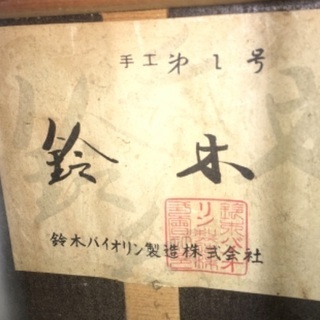 手工㐧1号
鈴木
鈴木バイオリン製造株式会社